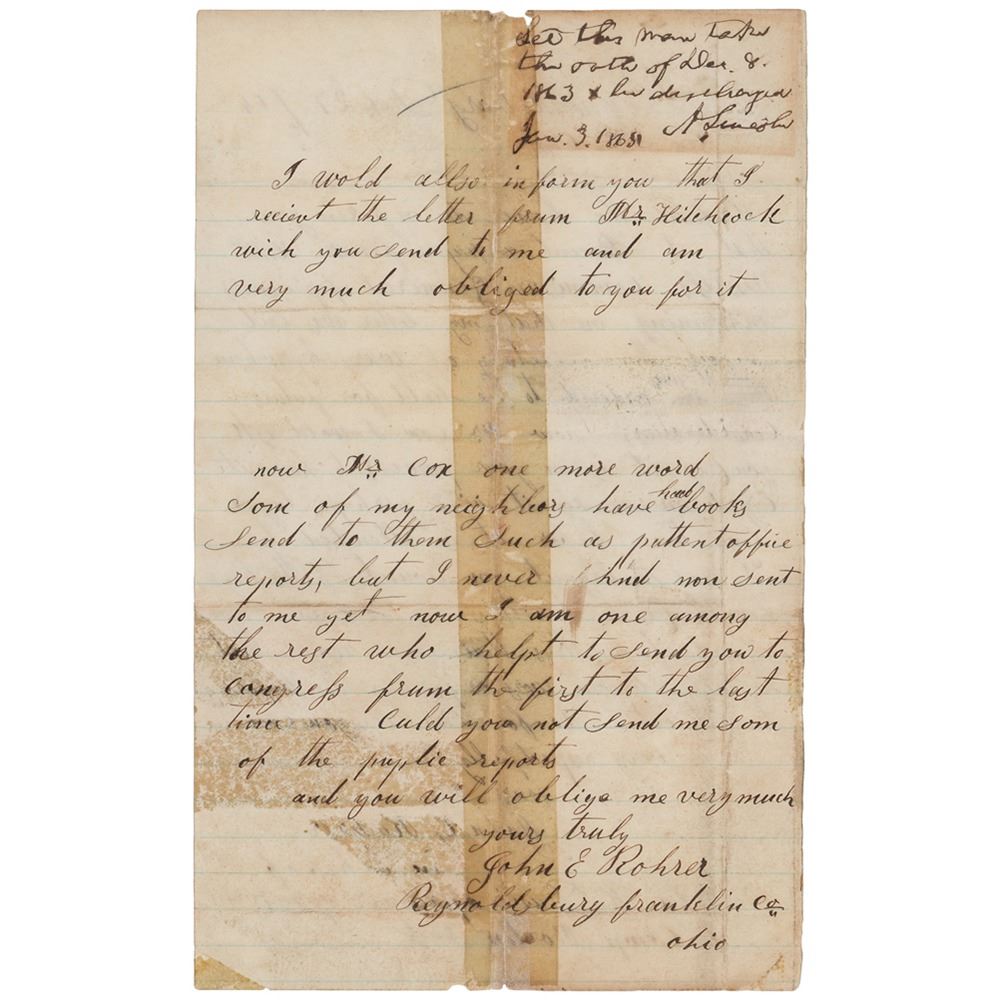 Let this man take
the oath of Dec. 8.
1863 & be discharged
Jan. 3. 1865 A. Lincoln
I wold allso inform you that I
recievt the letter frum Mr Hitchcock
wich you send to me and am
very much obliged to you for it
now Mr Cox one more word
Som of my neighbors have had books
Send to them Such as pattent office
reports, but I never had non sent
to me yet now I am one among
the rest who helpt to send you to
Congress frum the first to the last
time Culd you not send me som
of the puplic reports
and you will oblige me very much
yours truly
John E Rohrer
Reynoldsbury franklin Co
ohio